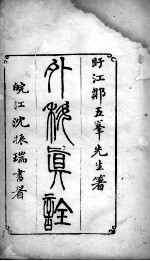 盱江鄒五峯先生著
外科眞詮
皖江沈振瑞書署